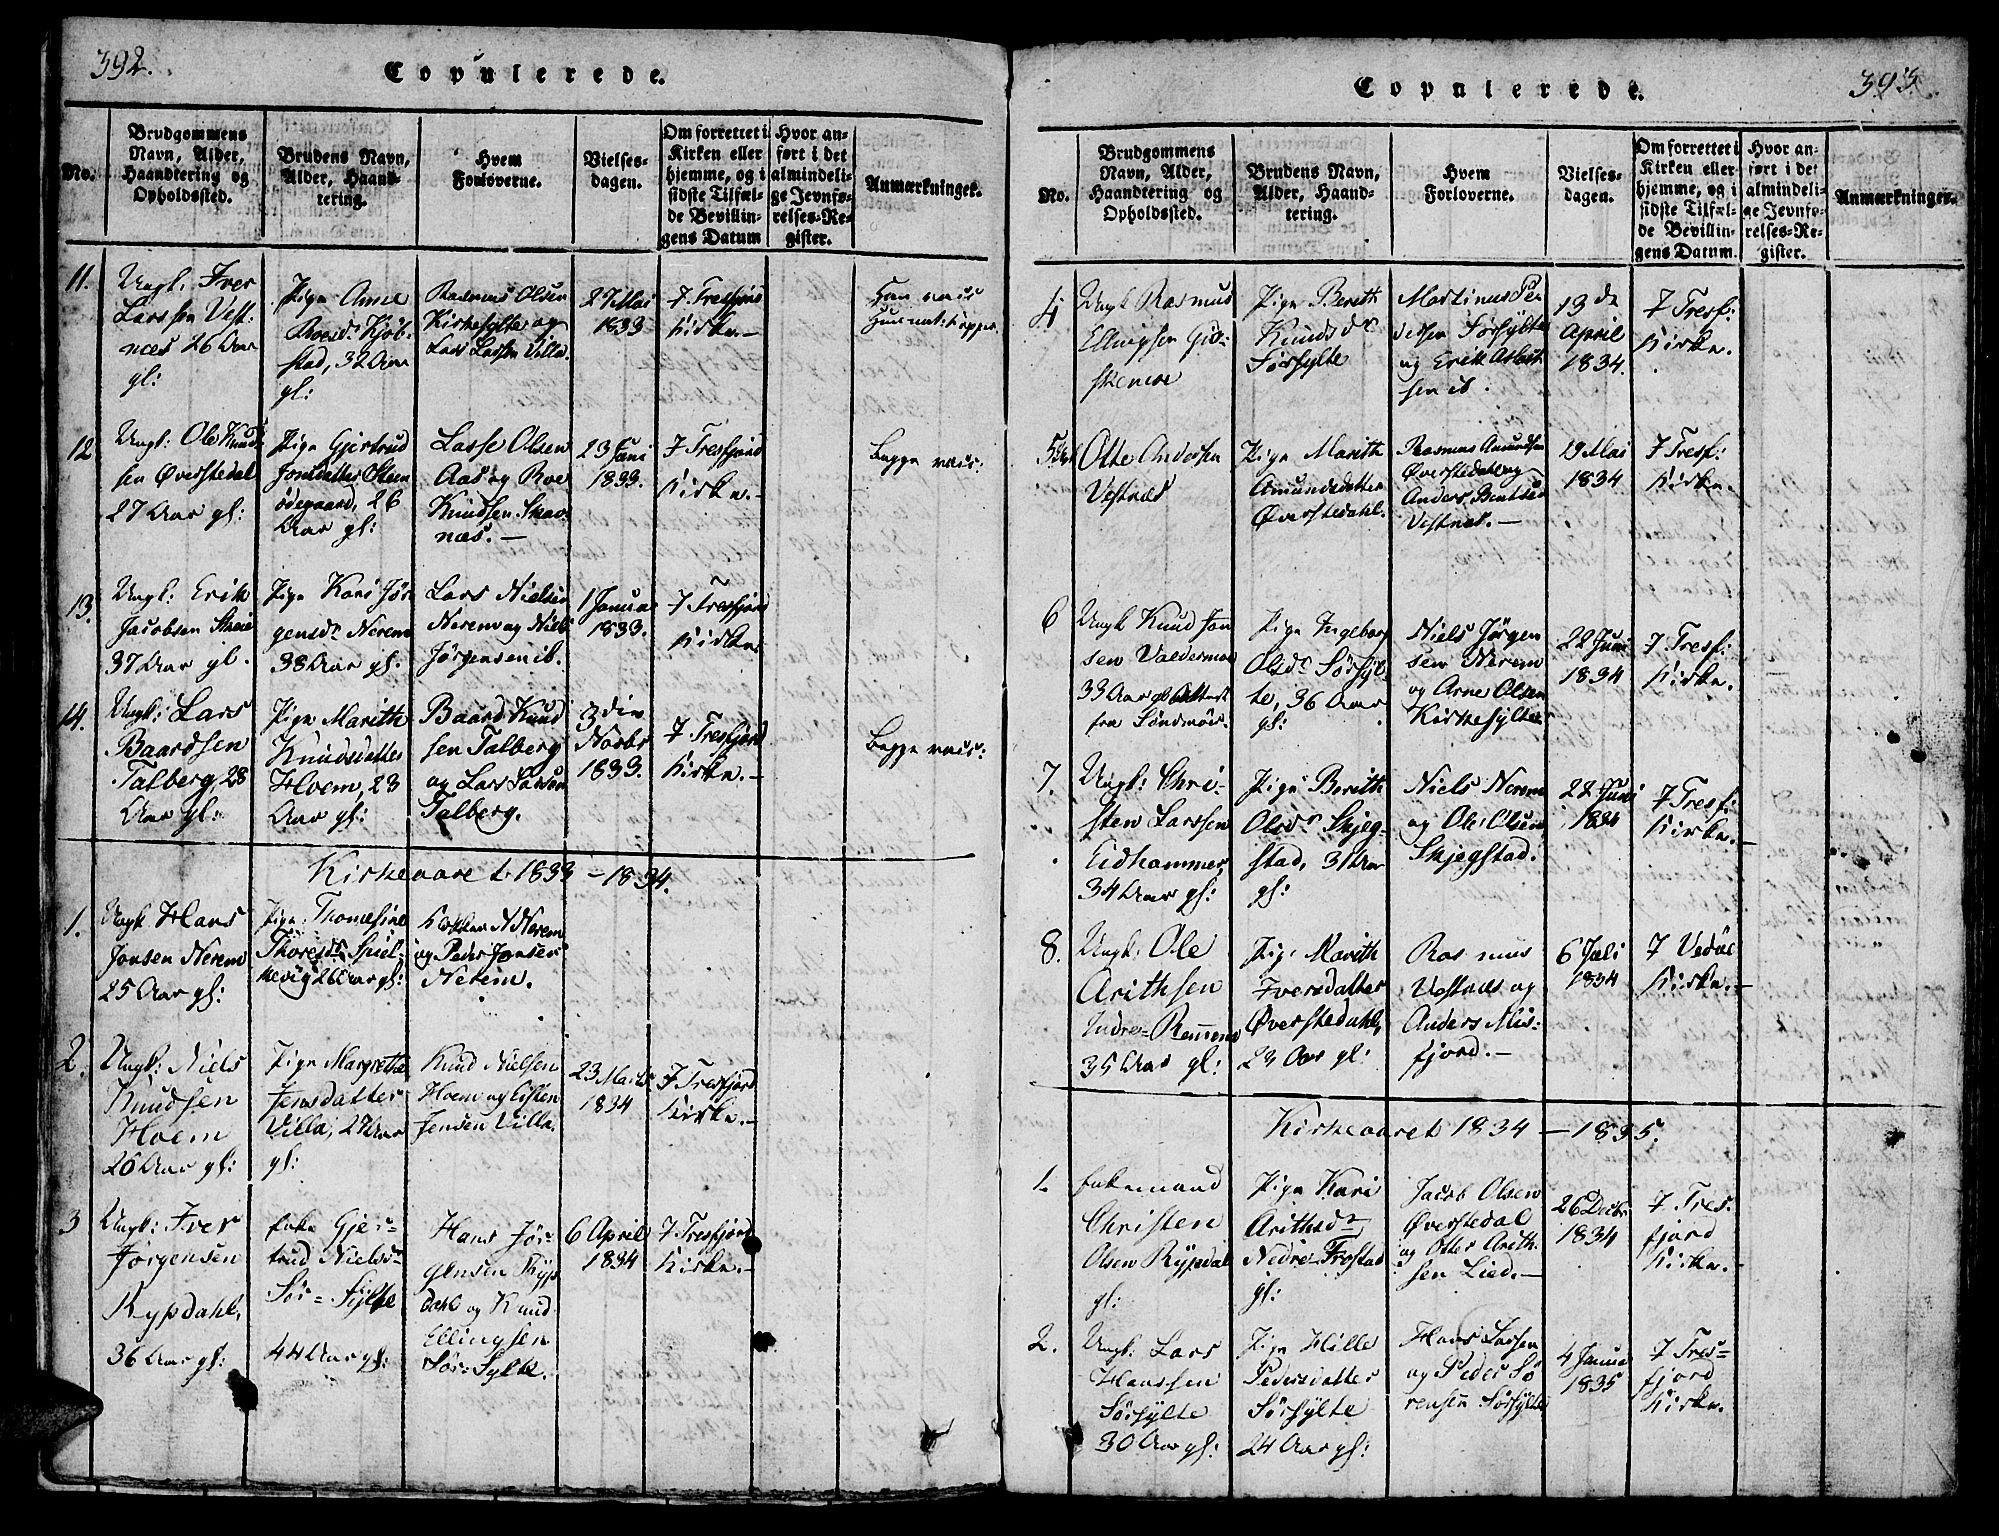 392.
Copulerede.
No.
Brudgommens
Navn, Alder,
Haandtering og
Opholdssted.
Brudens Navn,
Alder, Haand-
tering.
Hvem
Forloverne.
Vielses-
dagen.
Om forrettet i
Kirken eller
hjemme, og i
sidste Tilfæl-
de Bevillin-
gens Datum
Hvor an-
ført i det
almindeli-
ge Jevnfø-
relses-Re-
gister.
Anmærkninger.
11.
Ungk: Iver
Larssen Vest-
næs 26 Aar
gl:
Pige Anne
Roesdr Kjøb-
stad, 32 Aar
gl:
Rasmus Olsen
Kirkesylte og
Lars Larsen Villa.
2 Mai
1833
i Tresfjord
Kirke.-
Han vacs
12
Ungk: Ole Knud
sen Øverstedal
27 Aar gl:
Pige Gjertrud
Jonsdatter
ødegaard, 26
Aar gl:
Lasse Olsen
Aas og Roe
Knudsen Skav-
næs.-
23 Juni
1833.
i Tresfjord
Kirke.-
Begge vacs:
13.
Ungk: Erik
Jacobsen
37 Aar gl.
Pige Kari Jør
gensdr Nerem
38 Aar gl.
Lars Nielsen
Nerem og Niels
Jørgensen ib.
1 Januar
1833.
i Tresfjord
Kirke
14.
Ungk: Lars
Baardsen
Talberg, 28
Aar gl:
Pige Marith
Knudsdatter
Hoem, 23
Aar gl:
Baard Knud
sen Talberg
og Lars Larsen
Talberg.
3 die
Novbr
1833.
i Tresfjord
Kirke.-
Begge vacs:
Kirkeaaret 1833 - 1834.
1.
Ungk Hans
Jonsen Nerem
25 Aar gl:
Pige Thomesine
Thoresdr Spiel
kevig 26 Aar gl:
N Nerem
og Peder Jonsen
Nerem.
2.
Ungk: Niels
Knudsen
Hoem
26 Aar gl:
Pige Margrethe
Jensdatter
Villa, 27 Aar
gl:
Knud Nielsen
Hoem og Eisten
Jensen Villa.
23 Marts
1834
i Tresfjord
Kirke.-
3
Ungk: Iver
Jørgensen
Rypdahl,
36 Aar gl:
Enke Gjer-
trud Nielsdr
Sør-Sylte
44 Aar gl:
Hans Jør-
gensen Ryp
dahl og Knud
Ellingsen
Sør-Sylte.
6 April
1834
i Tresfjord
Kirke.-
Copulerede.
393.
No.
Brudgommens
Navn, Alder,
Haandtering og
Opholdssted.
Brudens Navn,
Alder, Haand-
tering.
Hvem
Forloverne.
Vielses-
dagen.
Om forrettet i
Kirken eller
hjemme, og i
sidste Tilfæl-
de Bevillin-
gens Datum.
Hvor an-
ført i det
almindeli-
ge Jevnfø-
relses-Re-
gister.
Anmærkninger.
4
Ungk Rasmus
Ellingsen Gid-
skemoe
Pige Berith
Knudsdr
Sørsylte
Martinus Pe
dersen Sørsylte
og Erik Aslak
sen ib.
13 de
April
1834.
i Tresf:
Kirke.
5
Otte Andersen
Vestnæs
Pige Marith
Amundsdatter
Øverstedahl.
Rasmus Amundsen
Øverstedahl og
Anders Bentsen
Vestnæs.-
19 Mai
1834
i Tresf:
Kirke.-
6
Ungk Knud Jon
sen Valdermoe
33 Aar gl Attest
fra Søndmør.
Pige Ingeborg
Olsdr Sørsyl
te, 36 Aar
gl:
Niels Jørgen
sen Nerem
og Arne Olsen
Kirkesylte
22 Juni
1834
i Tresf:
Kirke.
7.
Ungk: Chri-
sten Larssen
Eidhammer,
34 Aar gl:
Pige Berith
Olsdr Skjeg-
stad, 31 Aar
gl:
Niels Nerem
og Ole Olsen
Skjegstad.
22 Juni
1834
i Tresf:
Kirke.-
8.
Ungk: Ole
Arithsen
Indre-Remmem
35 Aar gl:
Pige Marith
Iversdatter
Øverstedahl,
23 Aar gl:
Rasmus
Vestnæs og
Anders Mis-
fjord.-
6 Juli
1834
i Vedøe
Kirke.-
Kirkeaaret 1834 - 1835.
1.
Enkemand
Christen
Olsen Rypdal
gl:
Pige Kari
Arithsdr
Nedre Frostad
gl:
Jacob Olsen
Øverstedal
og Otter Arith
sen Lied.-
26 Decbr
1834
i Tres-
fjord
Kirke.-
2.
Ungk: Lars
Hanssen
Sørsylte
30 Aar gl:
Pige Hille
Pedersdatter
Sørsylte
24 Aar gl:
Hans Larsen
og Peder Sø
rensen Sørsylte
4 Januar
1835
i Tres-
fjord
Kirke.